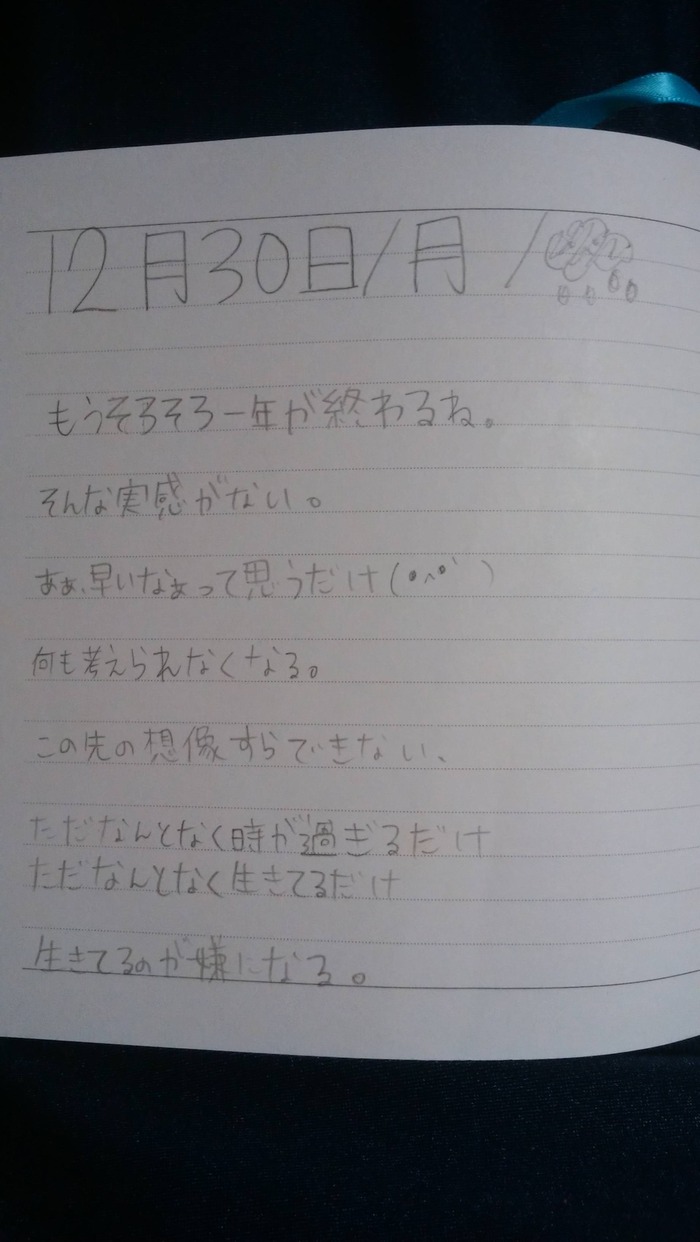 12月30日/月 /
もうそろそろ一年が終わるね。
そんな実感がない。
あぁ、早いなぁって思うだけ(•^•`)
何も考えられなくなる。
この先の想像すらできない、
ただなんとなく時が過ぎるだけ
ただなんとなく生きてるだけ
生きてるのが嫌になる。